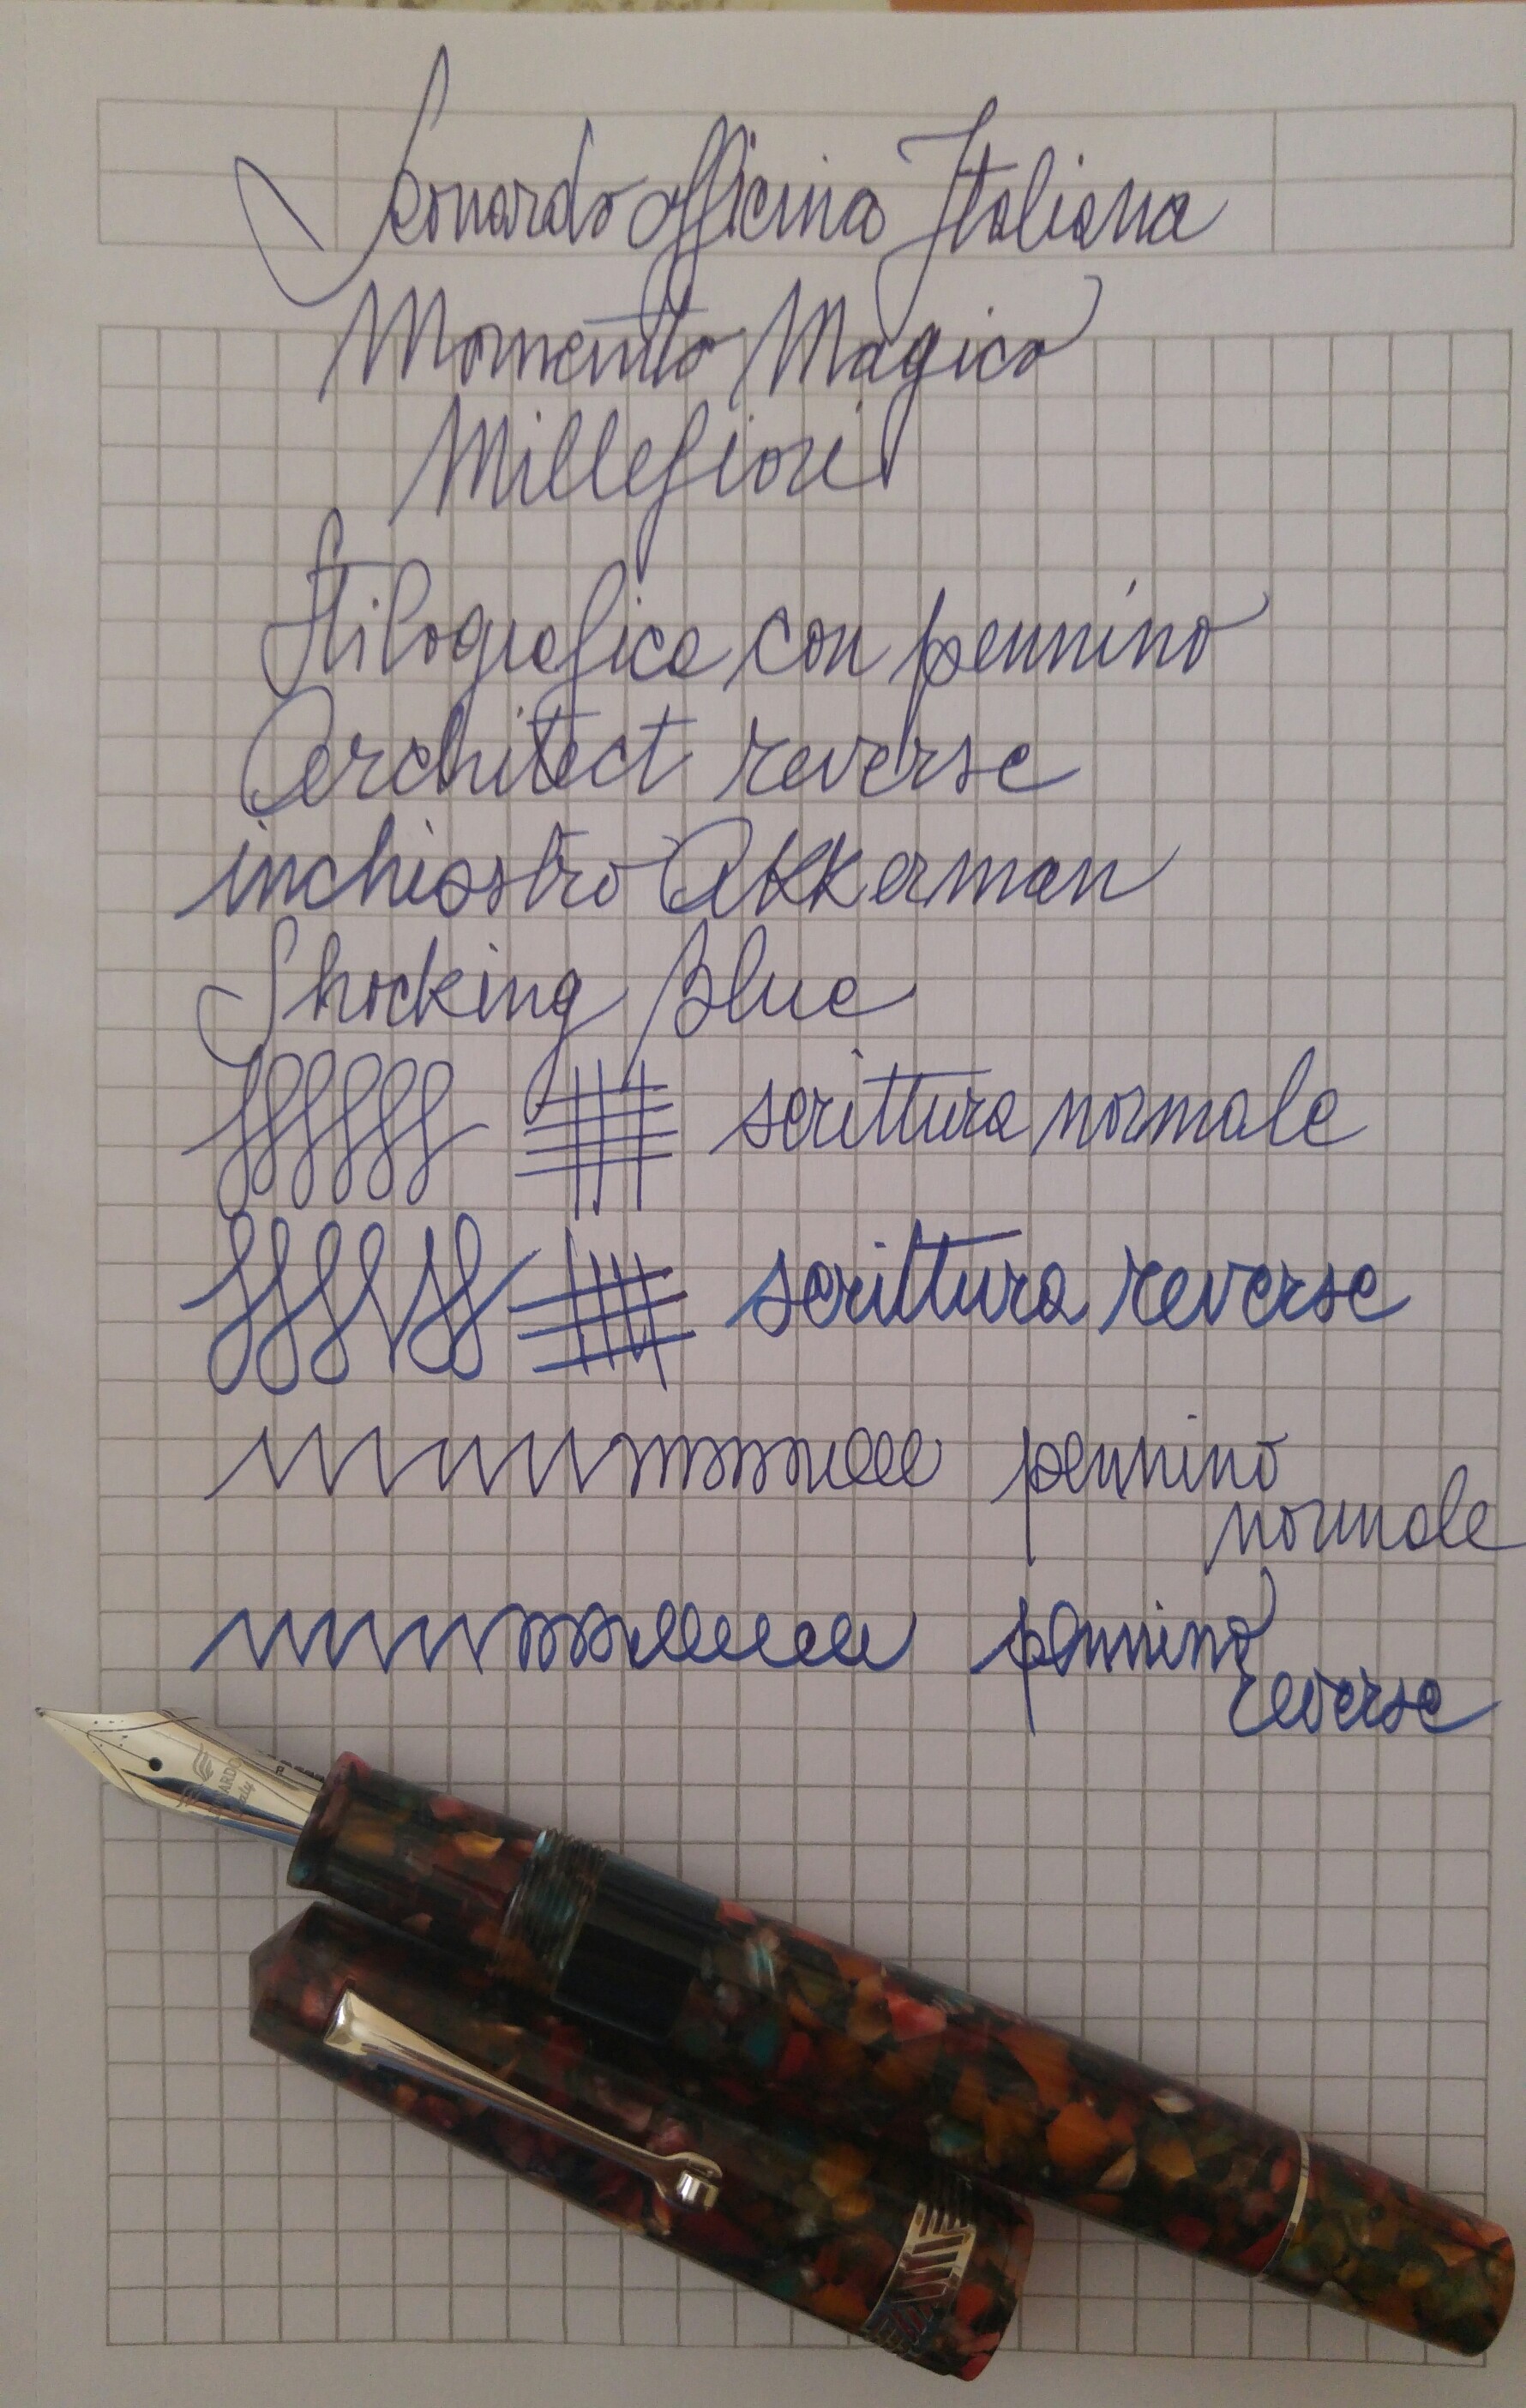 Leonardo officina Italiana
Momento Magico
Millefiori
Stilografica con pennino
architect reverse
inchiostro Akkerman
Shocking Blue
scrittura normale
scrittura reverse
pennino
normale
pennino
reverse
LEONARDO
Italy